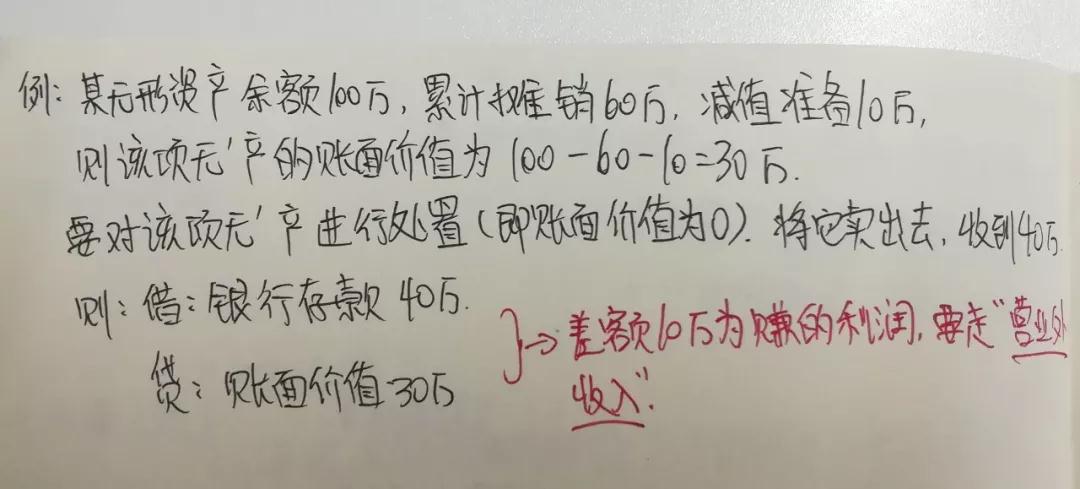 例：某无形资产余额100万，累计摊销60万，减值准备10万，
则该项无'产的账面价值为100-60-10=30万.
要对该项无'产进行处置(即账面价值为0).将它卖出去,收到40万.
则：借：银行存款 40万.
贷：账面价值30万
}→差额10万为赚的利润,要走"营业外
收入".